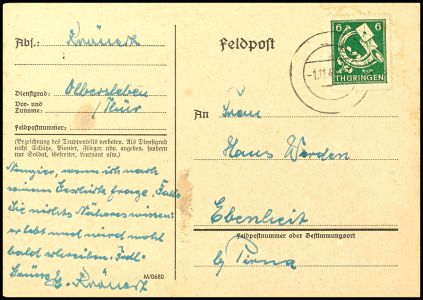 Abs.: Krönert
Dienstgrad: Olbersleben
Vor- und
Zuname: /Thür
Feldpostnummer:
(Bezeichnung des Truppenteils verboten. Als Dienstgrad
nicht Schütze, Pionier, Flieger usw. angeben, sondern
nur Soldat, Gefreiter, Leutnant usw.)
wenn ich nach
seinem frage. Falls
Sie nichts Näheres wissen:
er lebt und wird wohl
bald schreiben. Frdl.
Grüße E. Krönert
M/0680
Feldpost
6 6
THÜRINGEN
-1.11.4
An Frau
Hans Werden
Ebenheit
Feldpostnummer oder Bestimmungsort
b/ Pirna